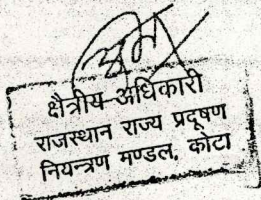 क्षैत्रीय अधिकारी
राजस्थान राज्य प्रदूषण
नियन्त्रण मण्डल, कोटा